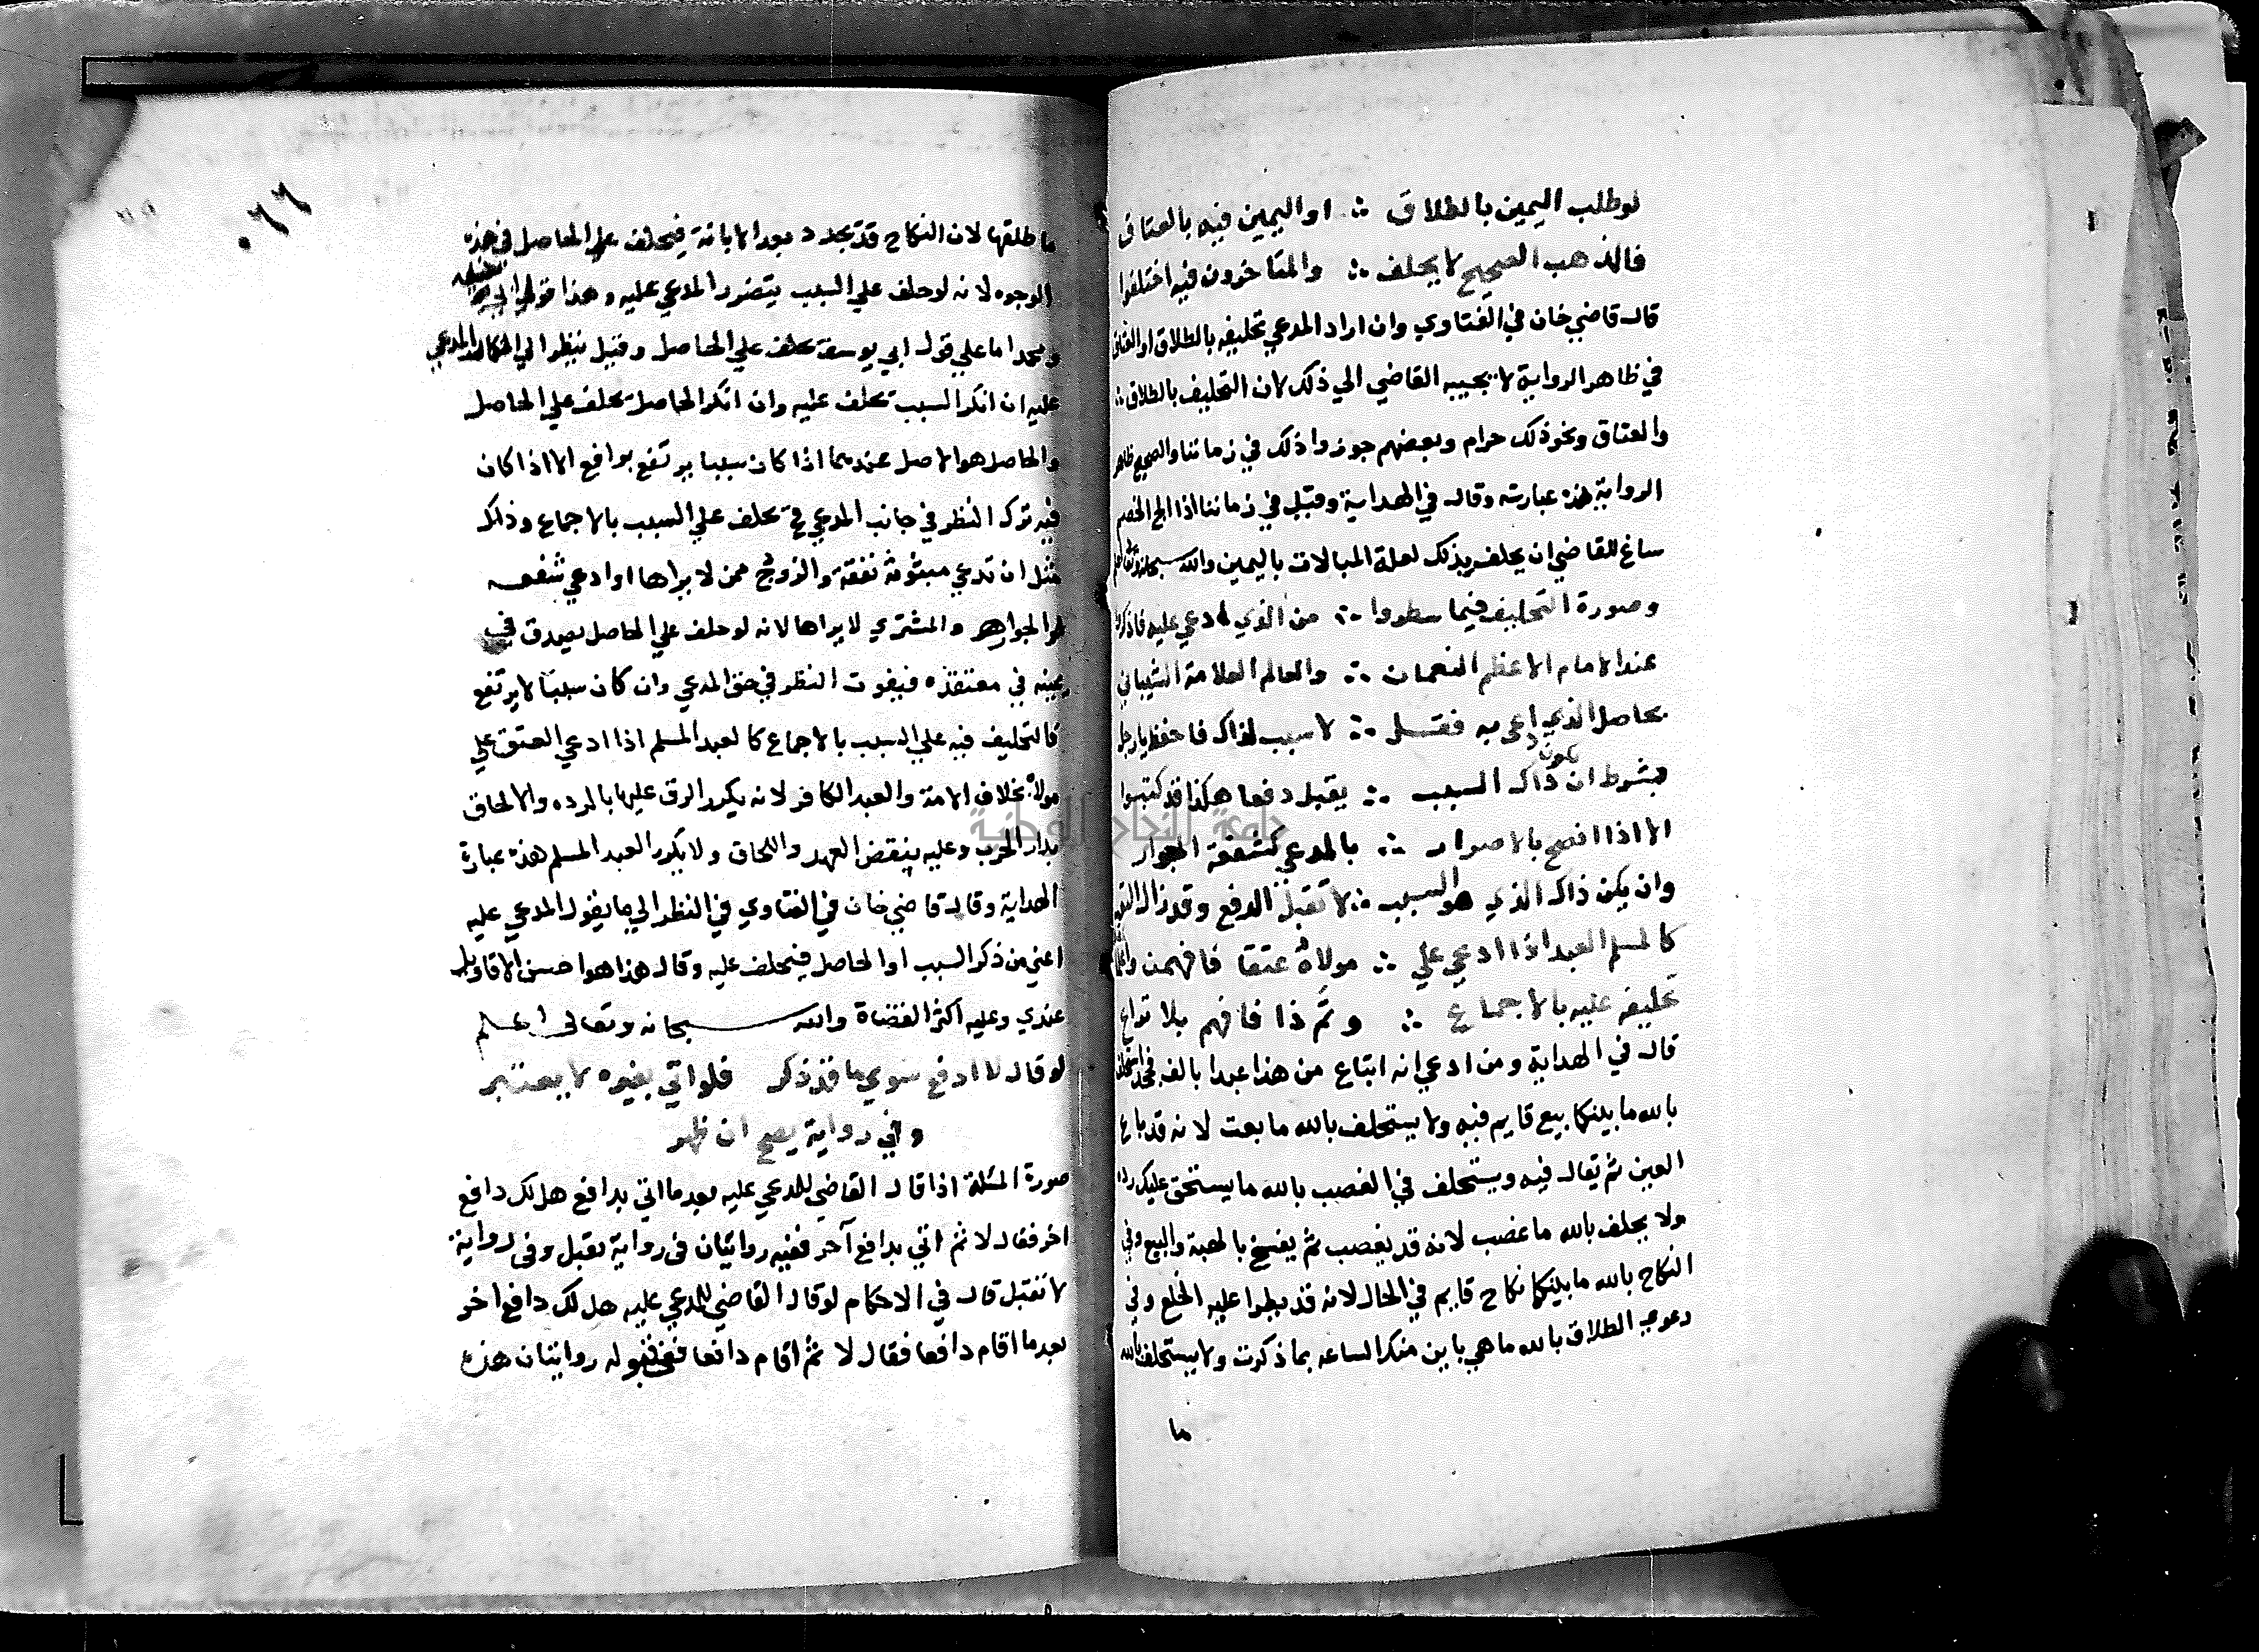 لو طلب اليمين بالطلاق ∴ او اليمين فيه بالعتاق
فالمذهب الصحيح لا يحلف ∴ والمتاخرون فيه اختلفوا
قال قاضي خان في الفتاوي وان اراد المدعي تحليفه بالطلاق او العتاق
في ظاهر الرواية لا يجيبه القاضي الي ذلك لان التحليف بالطلاق ∴
والعتاق ونحو ذلك حرام وبعضهم جوزوا ذلك في زماننا والصحيح ظاهر
الرواية هذه عبارته وقال في الهداية وقيل في زماننا اذا الح الخصم
ساغ للقاضي ان يحلف بذلك لعلة المبالات باليمين والله سبحانه وتعالى اعلم
وصورة التحليف فيما سطروا ∴ من الذي ادعي عليه فاذكروا
عند الامام الاعظم النعمان ∴ والعالم العلامة الشيباني
بحاصل الذي ادعى به فقل ∴ لا سبب لذاك فاحفظ يا رجل
بشرط ان يكون ذاك السبب ∴ يقبل دفعا هكذا قد كتبوا
الا اذا افصح بالاضرار ∴ بالمدعي كشفعة الجوار
وان يكن ذاك الذي هو السبب ∴ لا تقبل الدفع وقد زال
كالمسلم العبد اذا ادعي علي ∴ مولاه عتقا فافهمن
تحليفه عليه بالاجماع ∴ وتم ذا فافهم بلا نزاع
قال في الهداية ومن ادعي انه ابتاع من هذا عبدا بالف فجحد استحلف
بالله ما بينكما بيع قايم فيه ولا يستحلف بالله ما بعت لانه قد باع
العين ثم يقال فيه ويستحلف في الغصب بالله ما يستحق عليك رده
ولا يحلف بالله ما غصب لانه قد يغصب ثم يفسخ بالهبة والبيع وفي
النكاح بالله ما بينكما نكاح قايم في الحال لانه قد يطرا عليه الخلع وفي
دعوي الطلاق بالله ما هي باين منك الساعه بما ذكرت ولا يستحلف بالله
ما
٠٦٦
ما طلقها لان النكاح قد يجدد بعد الابانة فيحلف علي الحاصل في هذه
الوجوه لانه لو حلف علي السبب يتضرر المدعي عليه وهذا قول ابي حنيفه
ومحمد اما علي قول ابي يوسف يحلف علي الحاصل وقيل ينظر الي انكار المدعي
عليه ان انكر السبب يحلف عليه وان انكر الحاصل يحلف علي الحاصل
والحاصل هو الاصل عندهما اذا كان سببا يرتفع برافع الا اذا كان
فيه ترك النظر في جانب المدعي فح يحلف علي السبب بالاجماع وذلك
مثل ان تدعي مبتوتة نفقة والزوج ممن لا يراها او ادعي شفعه
الجوار والمشتري لا يراها لانه لو حلف علي الحاصل يصدق في
يمينه في معتقده فيفوت النظر في حق المدعي وان كان سببا لا يرتفع
فالتحليف فيه علي السبب بالاجماع كالعبد المسلم اذا ادعي العتق علي
مولاه بخلاف الامة والعبد الكافر لانه يكرر الرق عليها بالرده والالحاق
بدار الحرب وعليه ينقض العهد واللحاق ولا يكرر العبد المسلم هذه عبارة
الهداية وقال قاضي خان في الفتاوي في النظر الي ما يقول المدعي عليه
اعني من ذكر السبب او الحاصل فيحلف عليه وقال هذا هو احسن الاقاويل
عندي وعليه اكثر القضاة والله سبحانه وتعالى اعلم
لو قال لا ادفع سوي ما قد ذكر فلو اتي بغيره لا يعتبر
وفي رواية يصح ان ظهر
صورة المسئلة اذا قال القاضي للمدعي عليه بعد ما اتي بدافع هل لك دافع
اخر فقال لا ثم اتي بدافع آخر ففيه روايتان في رواية تقبل وفي رواية
لا تقبل قال في الاحكام لو قال القاضي للمدعي عليه هل لك دافع اخر
بعد ما اقام دافعا فقال لا ثم اقام دافعا ففي قبوله روايتان هذه
جامعة النجاح الوطنية